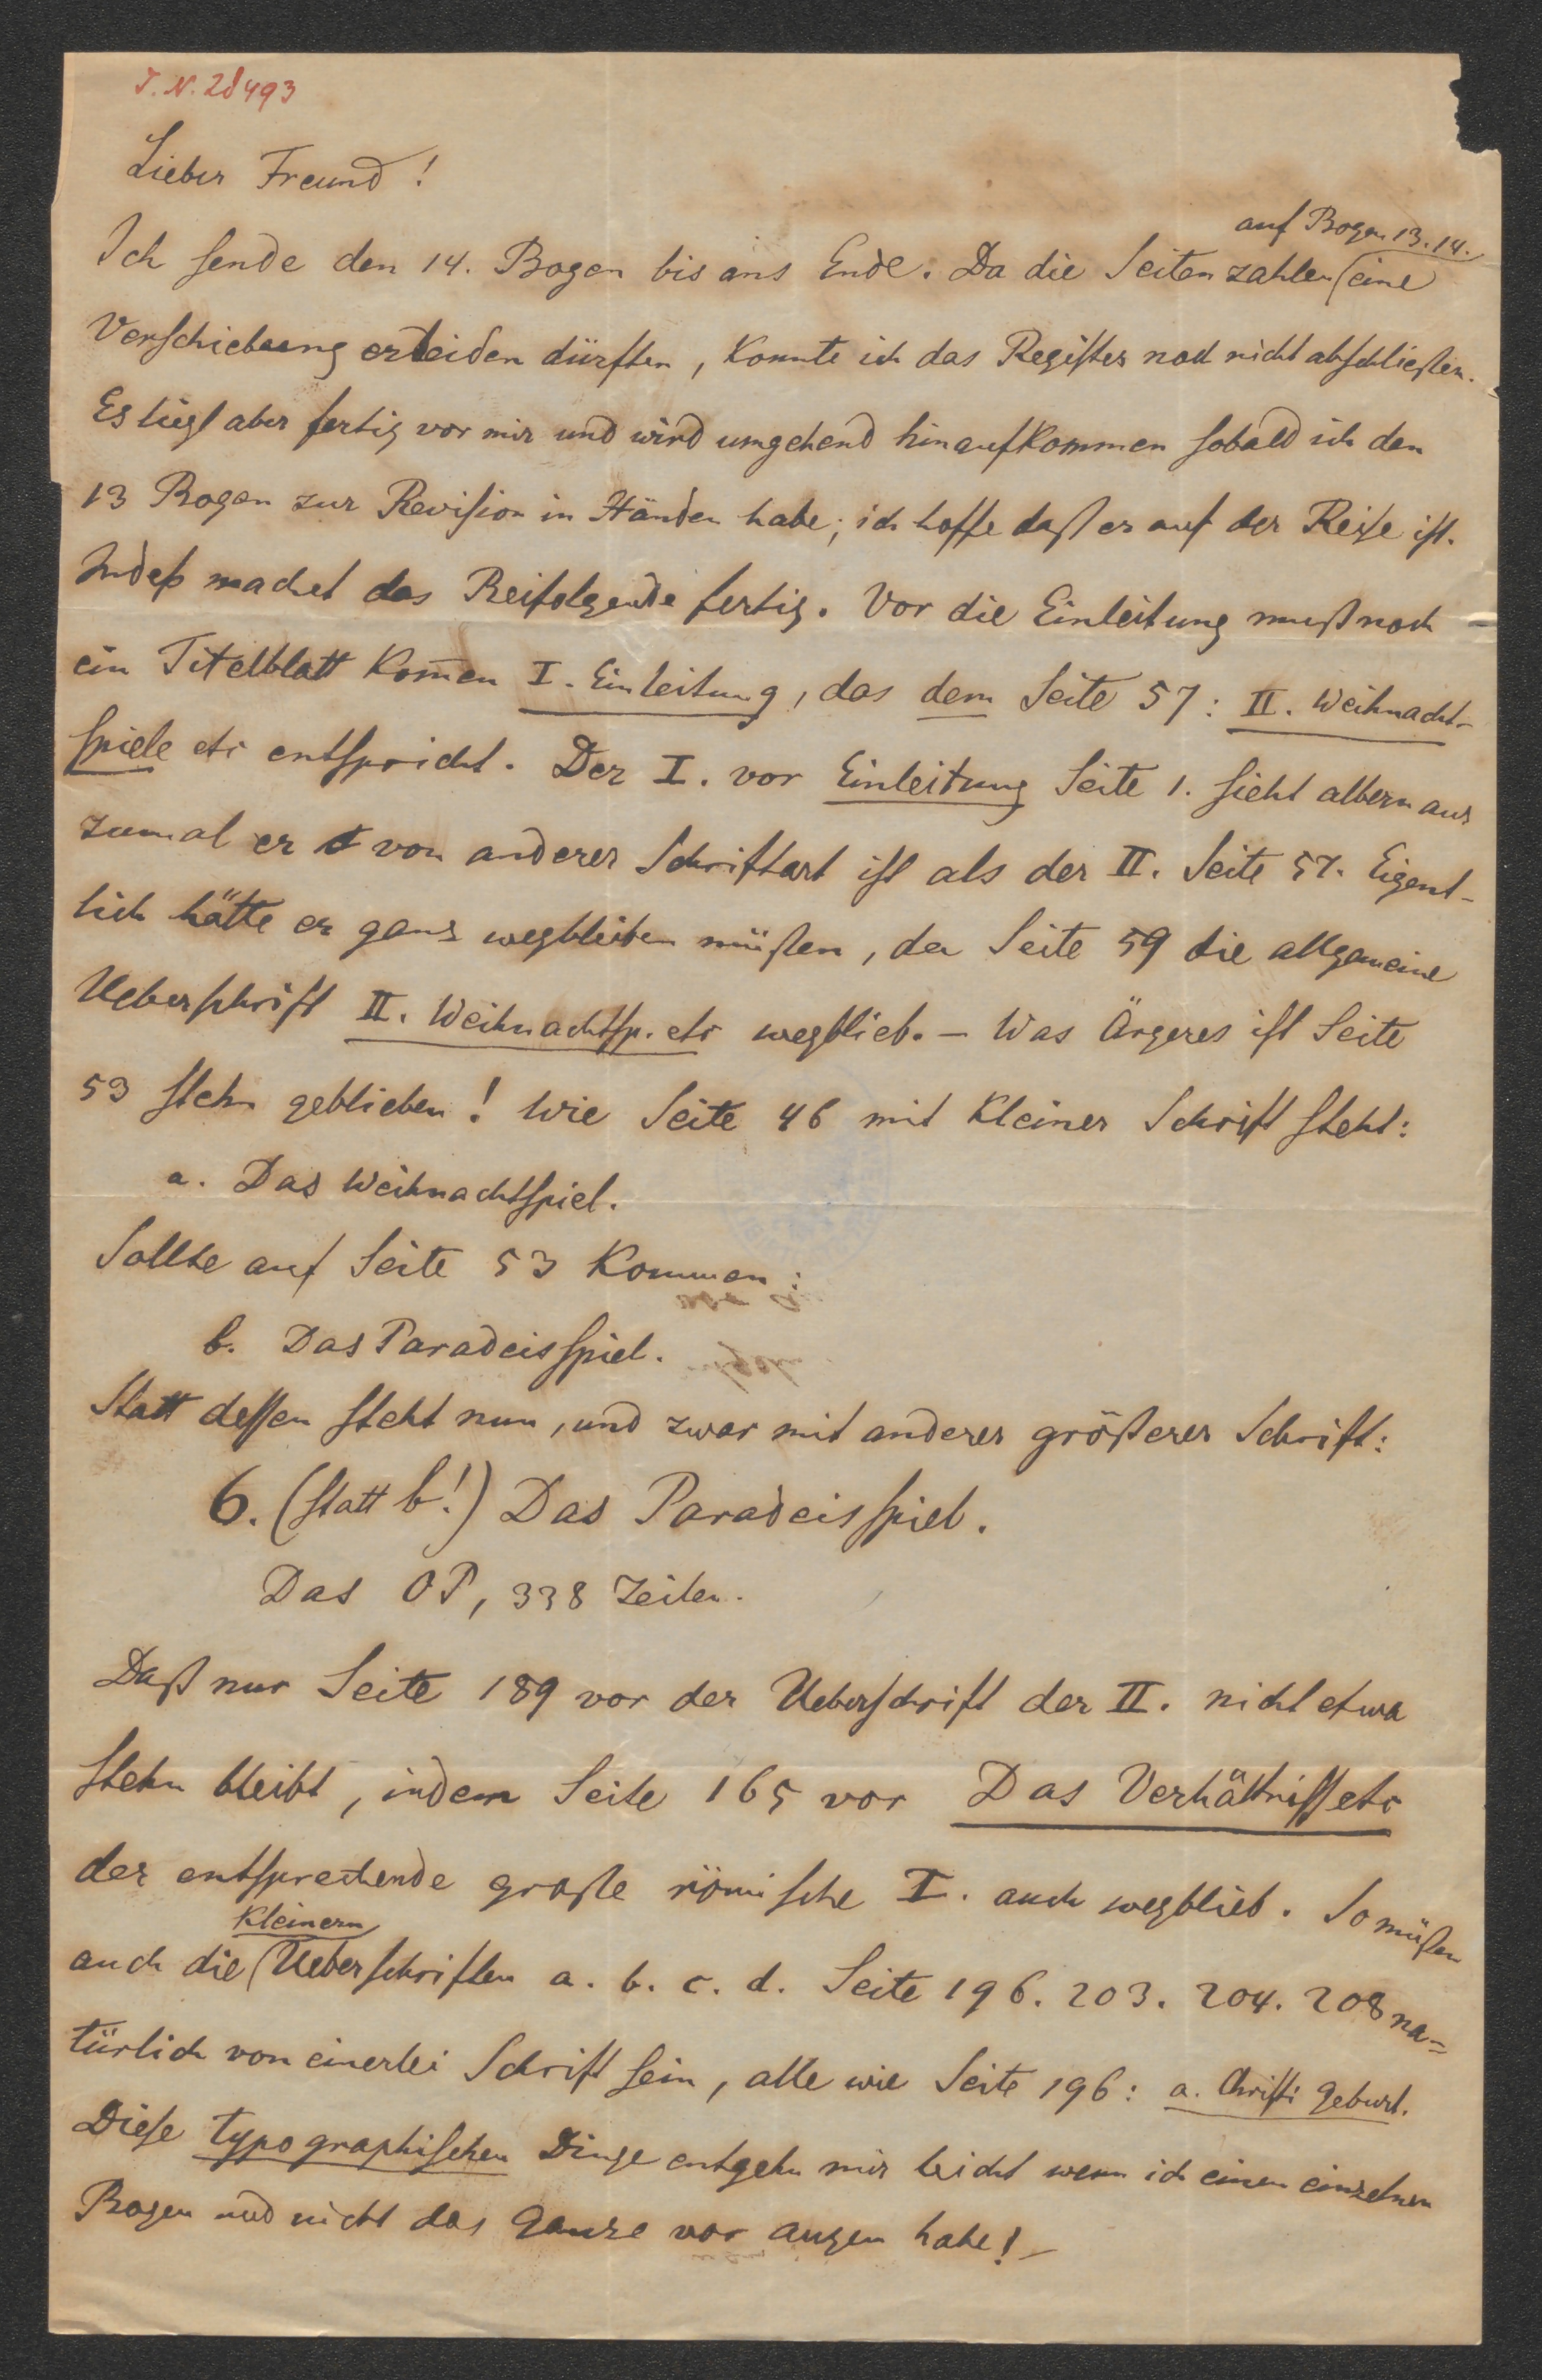 J. N. 28493
Lieber Freund!
auf Bogen 13. 14.
Ich sende den 14. Bogen bis ans Ende. Da die Seitenzahlen eine
Verschiebung erleiden dürften, konnte ich das Register noch nicht abschließen.
Es liegt aber fertig vor mir und wird umgehend hinaufkommen sobald ich den
13 Bogen zur Revision in Händen habe; ich hoffe daß er auf der Reise ist.
Indeß machet das Beifolgende fertig. Vor die Einleitung muß noch
ein Titelblatt kom̅en I. Einleitung, das dem Seite 57: II. Weihnacht-
spiele etc entspricht. Der I. vor Einleitung Seite 1. sieht albern aus
zumal er von anderer Schriftart ist als der II. Seite 57. Eigent-
lich hätte er ganz wegbleiben müßen, da Seite 59 die allgemeine
Ueberschrift II. Weihnachtsp. etc wegblieb. – Was Ärgeres ist Seite
53 stehn geblieben! Wie Seite 46 mit kleiner Schrift steht:
a. Das Weihnachtspiel.
Sollte auf Seite 53 kommen:
b. Das Paradeisspiel.
Statt dessen steht nun, und zwar mit anderer größerer Schrift:
6. (statt b!) Das Paradeisspiel.
Das OP, 338 Zeilen.
Daß nur Seite 189 vor der Ueberschrift der II. nicht etwa
stehn bleibt, indem Seite 165 vor Das Verhältniss etc
der entsprechende große römische I. auch wegblieb. So müßen
kleinern
auch die Ueberschriften a. b. c. d. Seite 196. 203. 204. 208 na=
türlich von einerlei Schrift sein, alle wie Seite 196: a. Christi Geburt.
Diese typographischen Dinge entgehn mir leicht wenn ich einen einzelnen
Bogen und nicht das Ganze vor augen habe! –